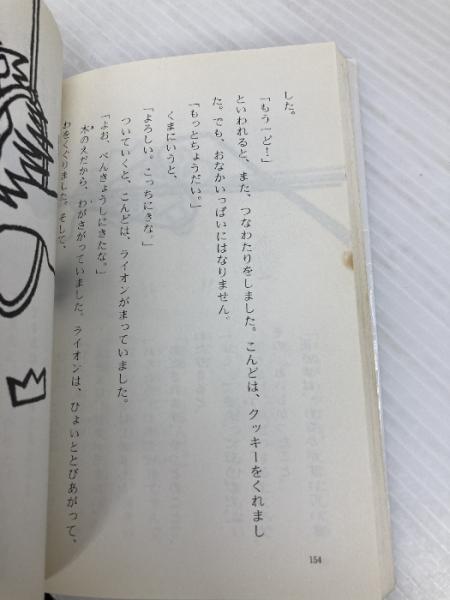 した。
「もう一ど!」
といわれると、また、つなわたりをしました。こんどは、クッキーをくれまし
た。でも、おなかいっぱいにはなりません。
「もっとちょうだい。」
くまにいうと、
「よろしい。こっちにきな。」
ついていくと、こんどは、ライオンがまっていました。
「よお、べんきょうしにきたな。」
木のえだから、わがさがっていました。ライオンは、ひょいととびあがって、
わをくぐりました。そして、
154